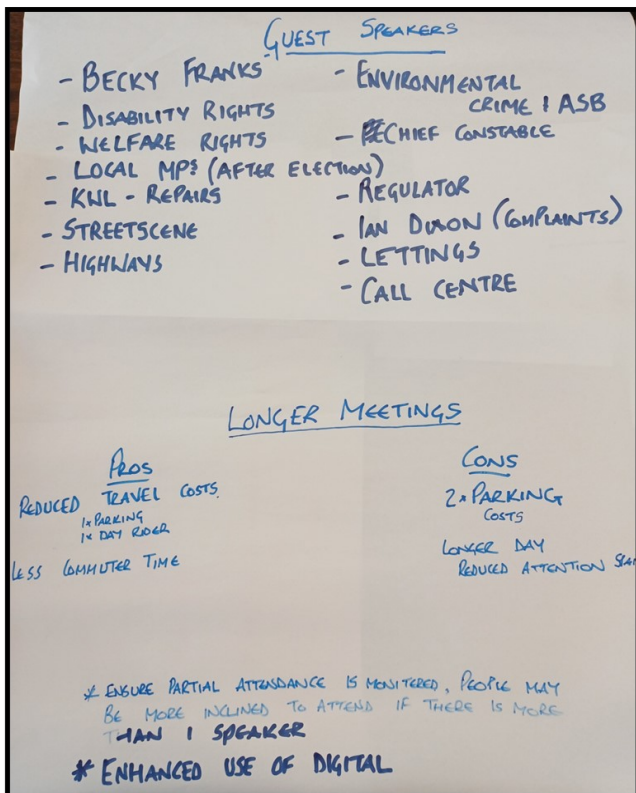 GUEST SPEAKERS
- BECKY FRANKS
- DISABILITY RIGHTS
- WELFARE RIGHTS
- LOCAL MPS (AFTER ELECTION)
- KWL - REPAIRS
- STREETSCENE
- HIGHWAYS
- ENVIRONMENTAL
CRIME & ASB
- CHIEF CONSTABLE
- REGULATOR
- IAN DIXON (COMPLAINTS)
- LETTINGS
- CALL CENTRE
LONGER MEETINGS
PROS
REDUCED TRAVEL COSTS
1x PARKING
1x DAY RIDER
LESS COMMUTER TIME
CONS
2x PARKING
COSTS
LONGER DAY
REDUCED ATTENTION SPAN
* ENSURE PARTIAL ATTENDANCE IS MONITERED, PEOPLE MAY
BE MORE INCLINED TO ATTEND IF THERE IS MORE
THAN 1 SPEAKER
* ENHANCED USE OF DIGITAL